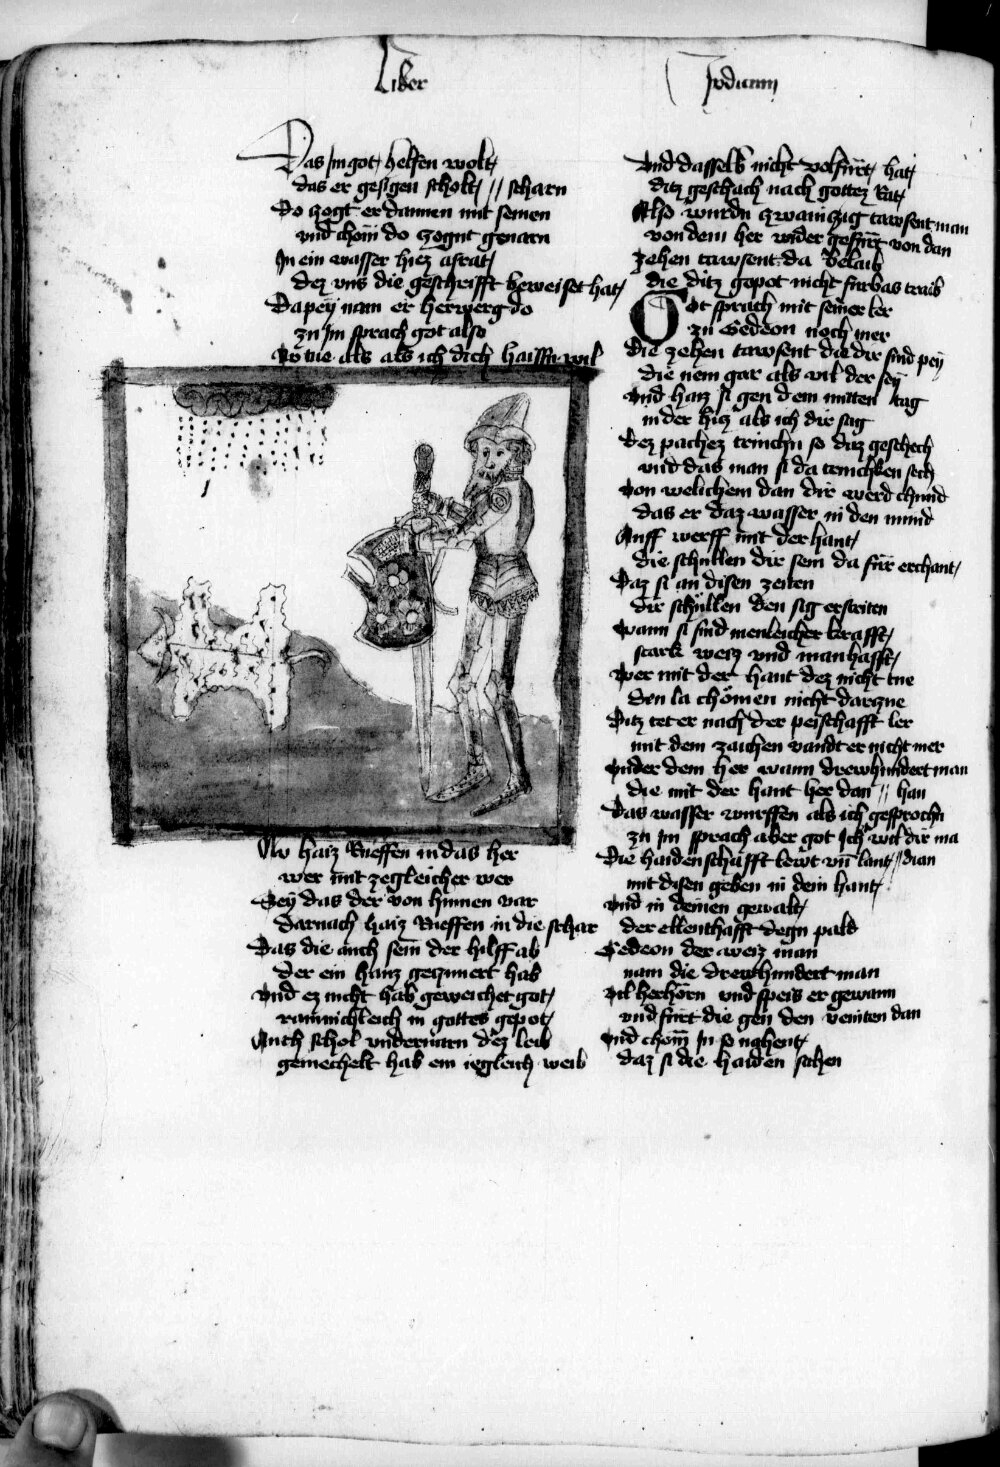 Liber
Das im got helfen wolt
das er gesigen scholt // scharn
Do zogt er dannen mit seinen
vnd chom do zognt genarn
In ein wasser hiez asrat
dez vns die geschrifft beweiset hat
Da pey nam er herwerg do
zu im sprach got also
Nv tue als als ich dich haissen wil
Nv haiz Rueffen in das her
wer mit zegleicher wer
Sey das der von hinnen var
darnach haiz Rueffen in die schar
Das die auch sein der hilff ab
der ein haus gezimert hab
vnd ez nicht hab geweichet got
rainichleich in gottes gepot
Auch schol vndernarn dez leib
gemechelt hab ein iegleich weib
vnd dasselb nicht volfürt hat
ditz geschach nach gottez Rat
Also wurdn zwainzig tawsent man
von dem her wider gefürt von dan
zehen tawsent da belaib
die ditz gepot nicht fürbas traib
Got sprach mit seiner ler
zu Gedeon noch mer
die zehen tawsent die dir sind pey
die nem gar als vil der sey
vnd haiz si gen dem mitten tag
in der hitz als ich dir sag
dez pachez trinchn so daz geschech
vnd das man si da trinchken sech
von welichem dan dir werd chund
das er daz wasser in den mund
Auff werff mit der hant
die schullen dir sein da für erchant
Daz si an disen zeiten
dir schüllen den sig erstriten
wann si sind menleicher krafft
stark weis vnd manhafft
wer mit der hant dez nicht tue
den la chömen nicht darzue
Ditz tet er nach der peyschafft ler
mit dem zaichen vandt er nicht mer
vnder dem her wann drewhundert man
die mit der hant her dan // han
Das wasser wurffen als ich gesprochn
zu im sprach aber got Ich wil dir ma
Die haidenschafft lewt vn lant // dian
mit disen geben in dein hant
vnd in deinen gewalt
der ellenthafft degn pald
Gedeon der weiz man
nam die drewhundert man
vil herhorn vnd speis er gewann
vnd fürt die gen den veinten dan
vnd chom In so nahent
daz si die haiden sahen